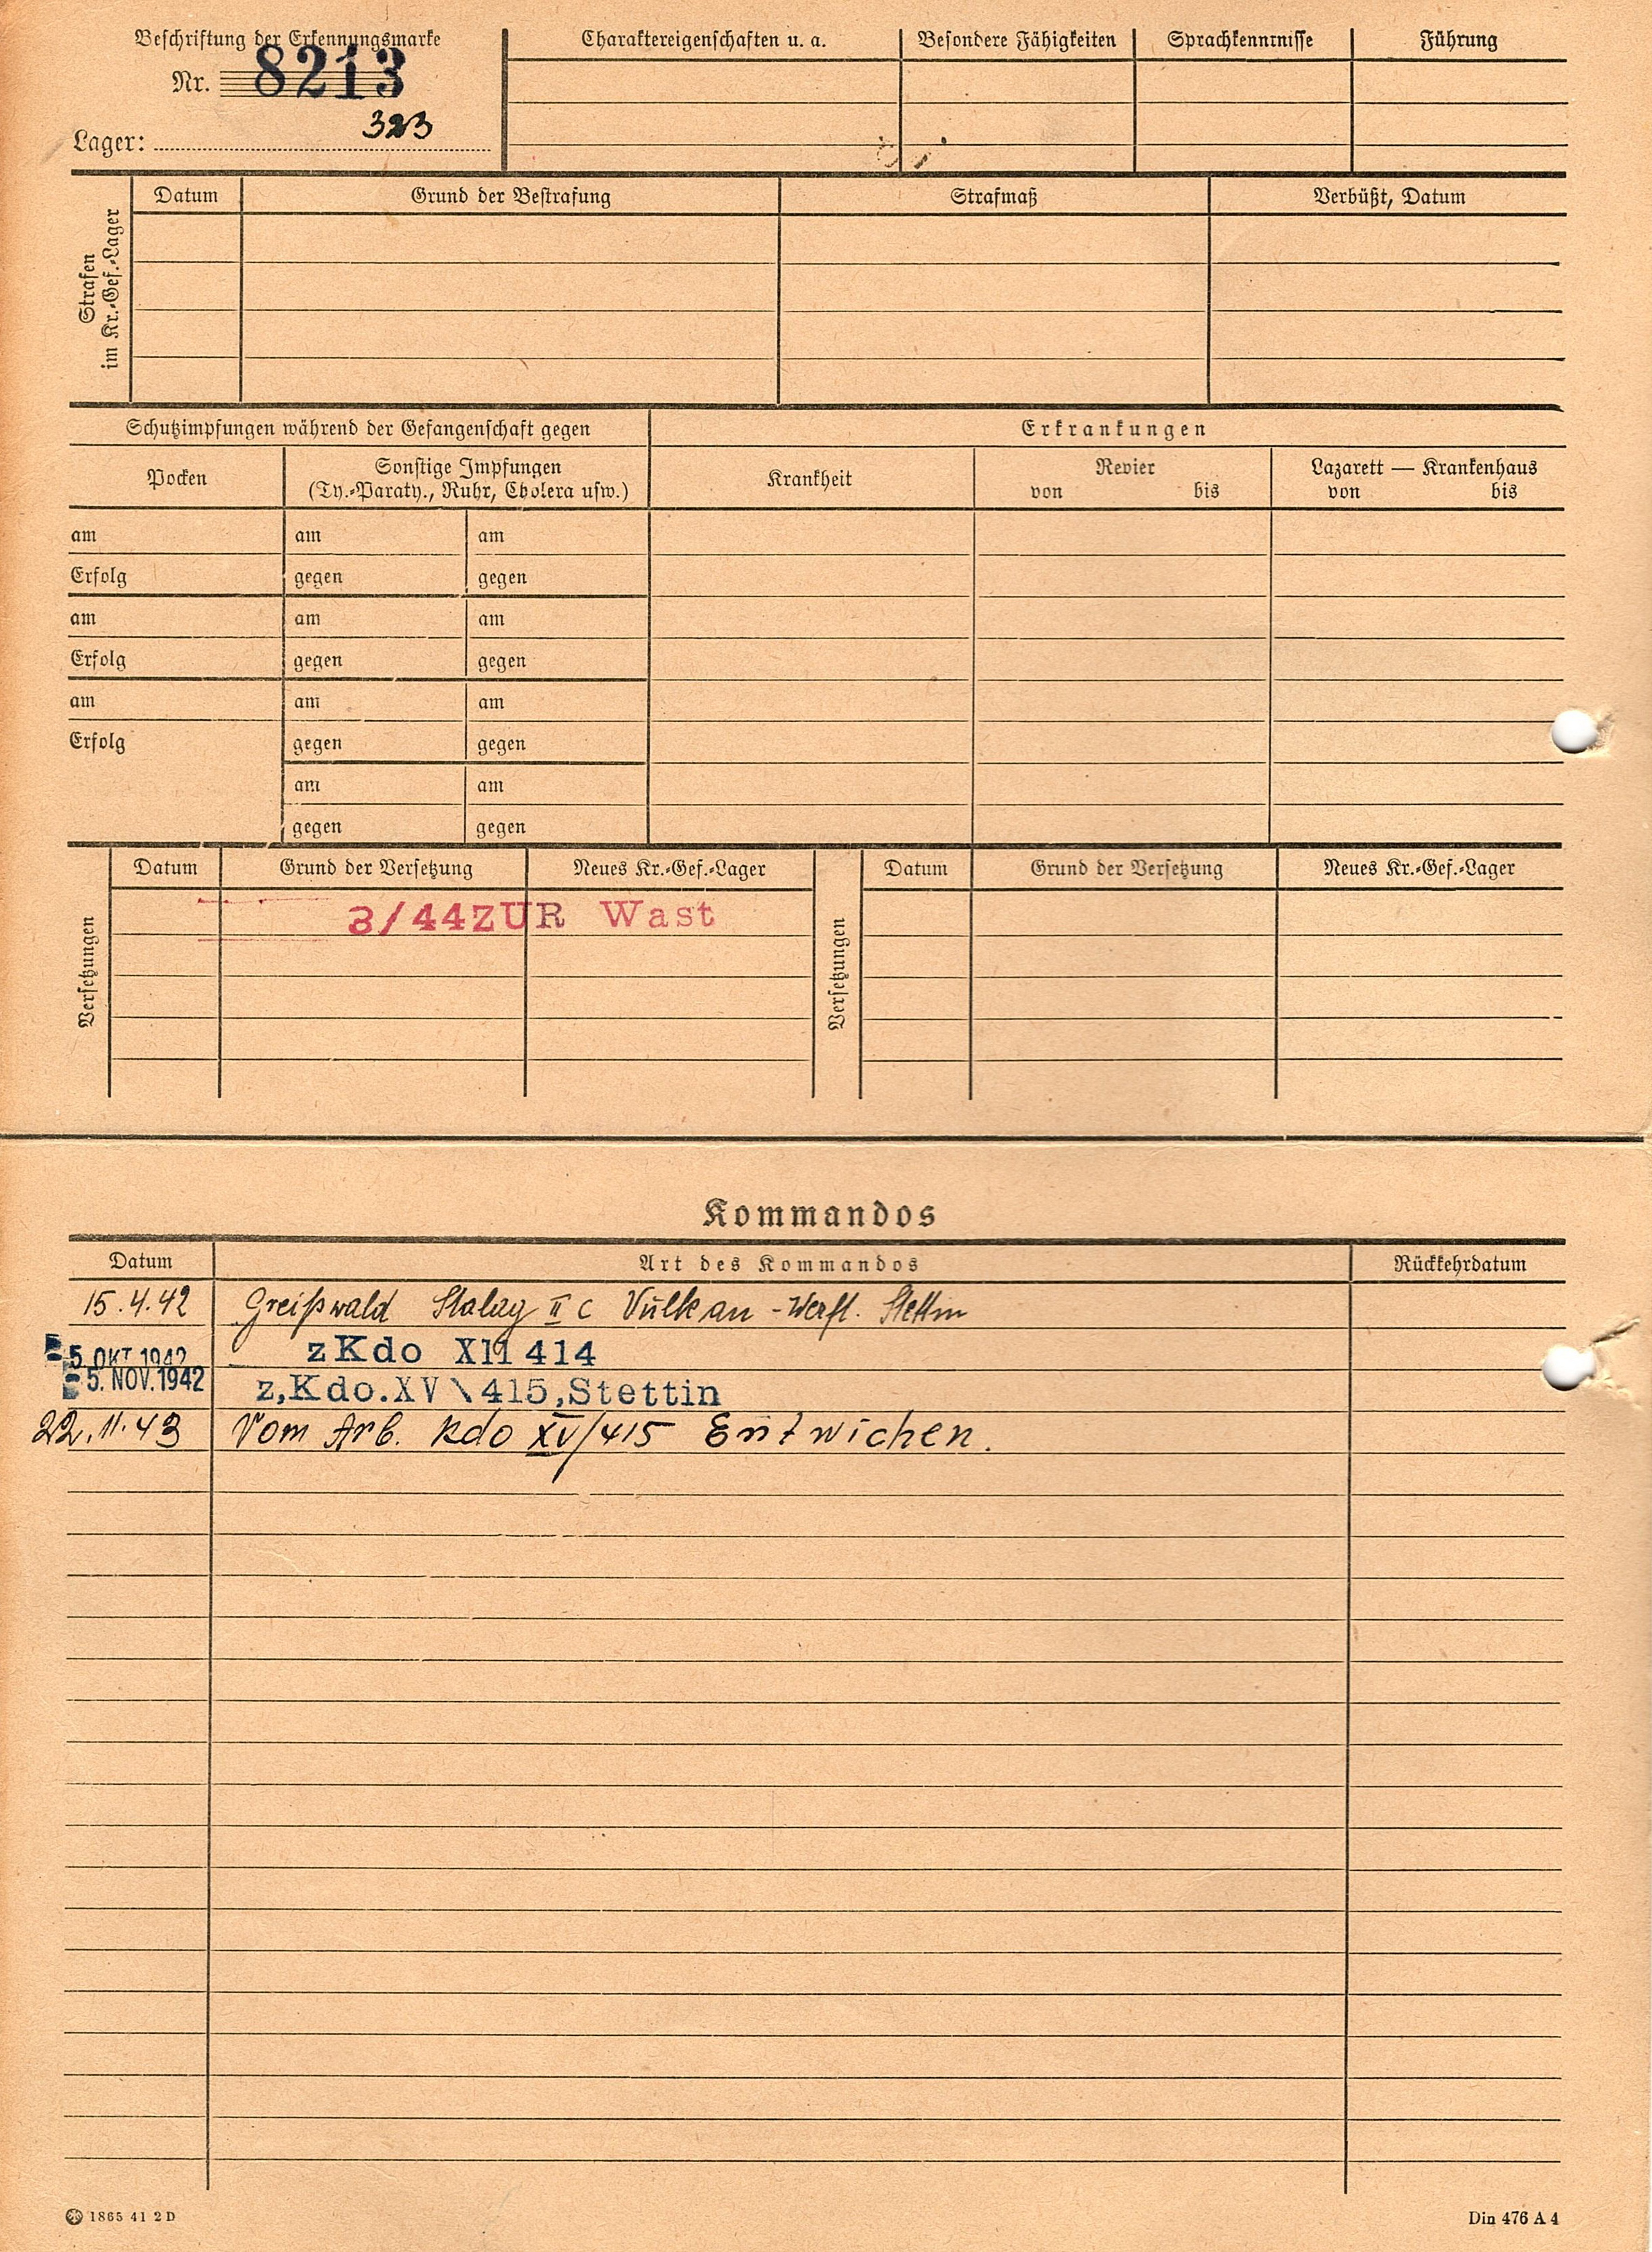 Beschriftung der Erkennungsmarke
Nr. 8213
Lager: 323
Charaktereigenschaften u. a. Besondere Fähigkeiten Sprachkenntnisse Führung
Strafen
im Kr.-Gef.-Lager
Datum Grund der Bestrafung Strafmaß Verbüßt, Datum
Schutzimpfungen während der Gefangenschaft gegen Erkrankungen
Pocken Sonstige Impfungen
(Ty.-Paraty., Ruhr, Cholera usw.)
Krankheit Revier
von bis
Lazarett — Krankenhaus
von bis
am am am
Erfolg gegen gegen
am am am
Erfolg gegen gegen
am am am
Erfolg gegen gegen
am am
gegen gegen
Versetzungen
Datum Grund der Versetzung Neues Kr.-Gef.-Lager
3/44ZUR Wast
Versetzungen
Datum Grund der Versetzung Neues Kr.-Gef.-Lager
Kommandos
Datum Art des Kommandos Rückkehrdatum
15.4.42 Greißwald Stalag II C Vulkan-Werft. Stettin
5. OKT. 1942 z Kdo XII 414
5. NOV. 1942 z,Kdo.XV\415,Stettin
22.11.43 Vom Arb. Kdo XV/415 Entwichen.
1865 41 2 D
Din 476 A 4